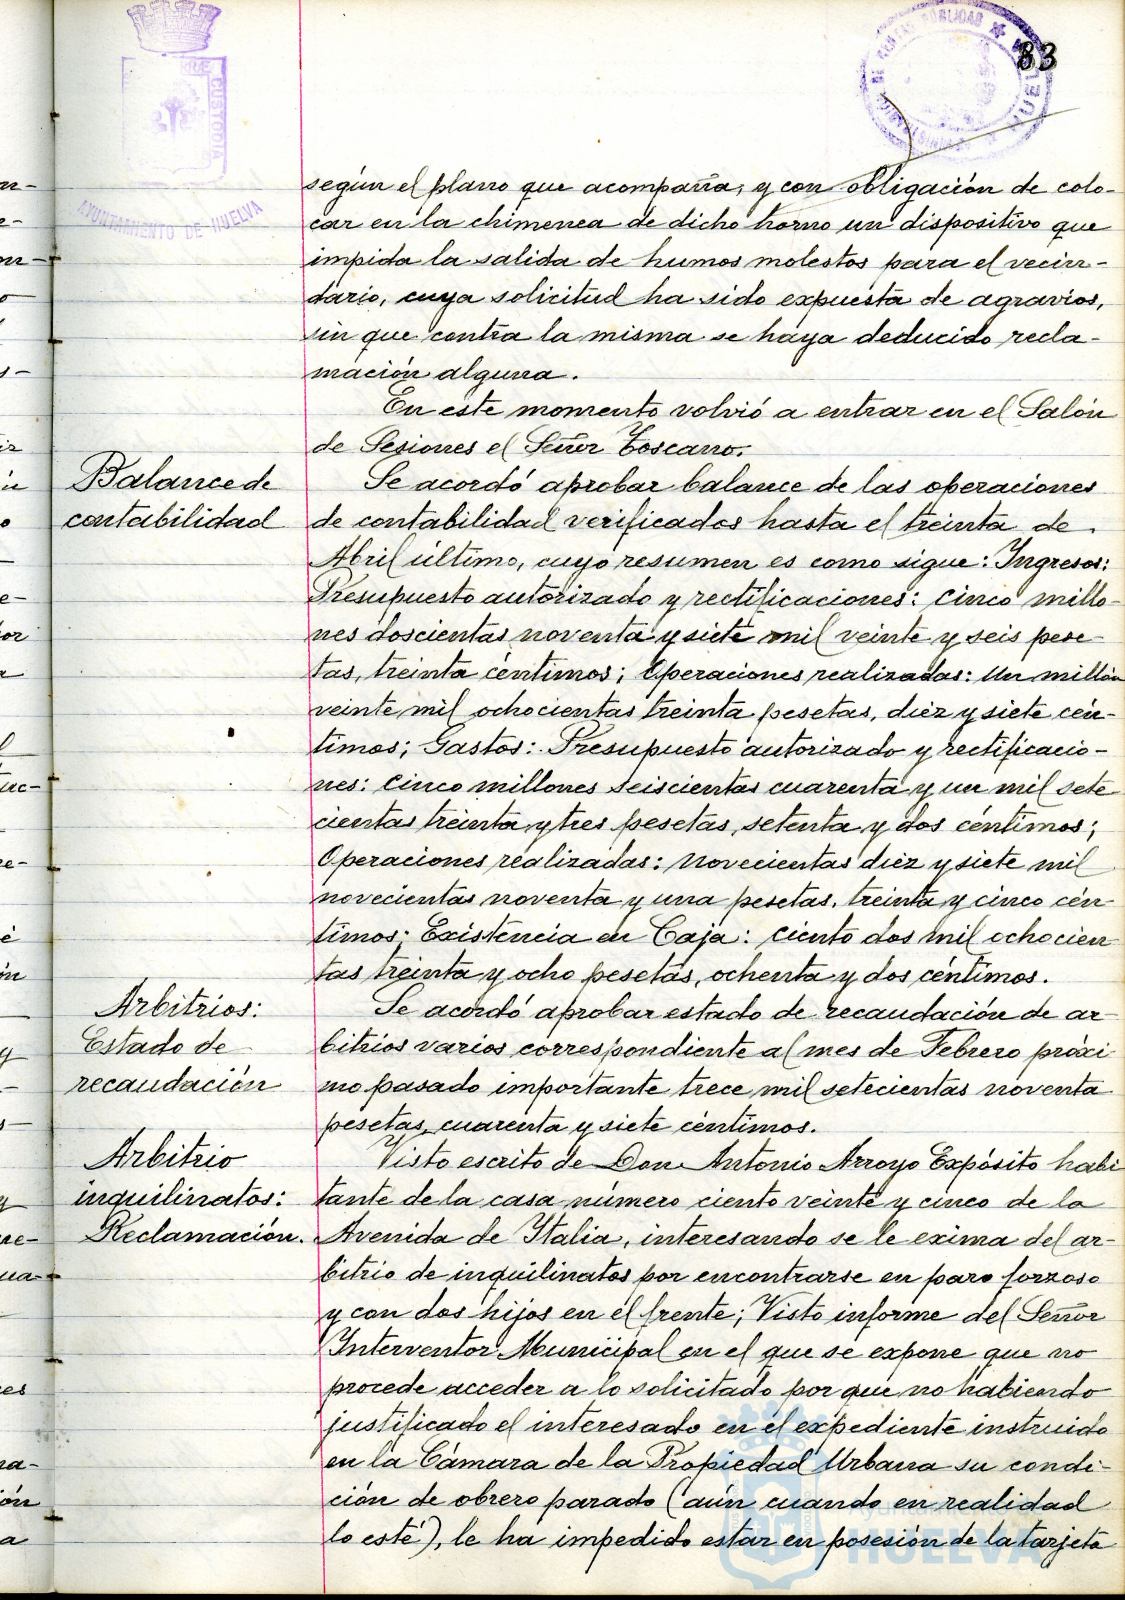 83
AYUNTAMIENTO DE HUELVA
según el plano que acompaña, y con obligación de colo-
car en la chimenea de dicho horno un dispositivo que
impida la salida de humos molestos para el vecin-
dario, cuya solicitud ha sido expuesta de agravios,
sin que contra la misma se haya deducido recla-
mación alguna.
En este momento volvió a entrar en el Salón
de Sesiones el Señor Toscano.
Balance de
contabilidad
Se acordó aprobar balance de las operaciones
de contabilidad verificados hasta el treinta de
Abril último, cuyo resumen es como sigue: Ingresos:
Presupuesto autorizado y rectificaciones: cinco millo-
nes doscientas noventa y siete mil veinte y seis pese-
tas, treinta céntimos; Operaciones realizadas: Un millón
veinte mil ochocientas treinta pesetas, diez y siete cén-
timos; Gastos: Presupuesto autorizado y rectificacio-
nes: cinco millones seiscientas cuarenta y un mil sete
cientas treinta y tres pesetas, setenta y dos céntimos;
Operaciones realizadas: novecientas diez y siete mil
novecientas noventa y una pesetas, treinta y cinco cén
timos; Existencia en Caja: ciento dos mil ochocien
tas treinta y ocho pesetas, ochenta y dos céntimos.
Arbitrios:
Estado de
recaudación
Se acordó aprobar estado de recaudación de ar-
bitrios varios correspondiente al mes de Febrero próxi
mo pasado importante trece mil setecientas noventa
pesetas, cuarenta y siete céntimos.
Arbitrio
inquilinatos:
Reclamación.
Visto escrito de Don Antonio Arroyo Expósito habi
tante de la casa número ciento veinte y cinco de la
Avenida de Italia, interesando se le exima del ar-
bitrio de inquilinatos por encontrarse en paro forzoso
y con dos hijos en el frente; Visto informe del Señor
Interventor Municipal en el que se expone que no
procede acceder a lo solicitado por que no habiendo
justificado el interesado en el expediente instruido
en la Cámara de la Propiedad Urbana su condi-
ción de obrero parado (aún cuando en realidad
lo esté), le ha impedido estar en posesión de la tarjeta
HUELVA